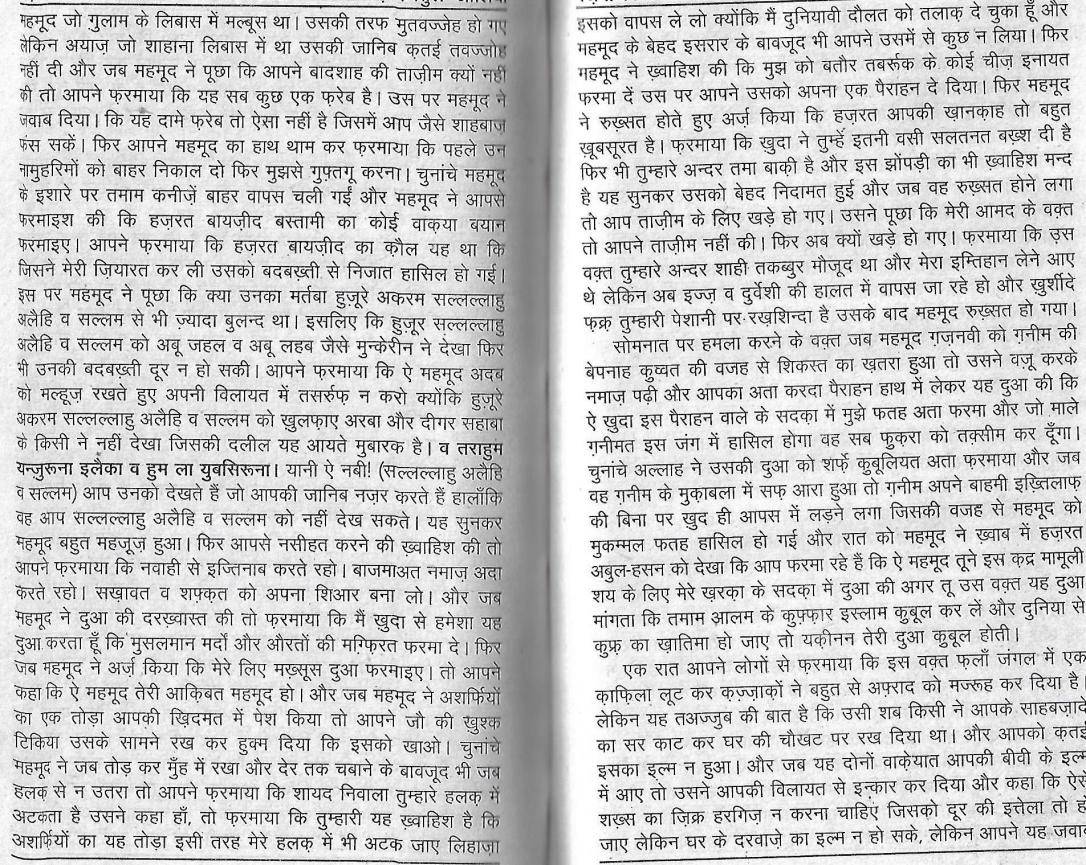 महमूद जो गुलाम के लिबास में मल्बूस था। उसकी तरफ मुतवज्जेह हो गए
लेकिन अयाज़ जो शाहाना लिबास में था उसकी जानिब क़तई तवज्जोह
नहीं दी और जब महमूद ने पूछा कि आपने बादशाह की ताज़ीम क्यों नहीं
की तो आपने फ़रमाया कि यह सब कुछ एक फ़रेब है। उस पर महमूद ने
जवाब दिया। कि यह दामे फ़रेब तो ऐसा नहीं है जिसमें आप जैसे शाहबाज़
फंस सकें। फिर आपने महमूद का हाथ थाम कर फ़रमाया कि पहले उन
नामुहरिमों को बाहर निकाल दो फिर मुझसे गुफ़्तगू करना। चुनांचे महमूद
के इशारे पर तमाम कनीज़ें बाहर वापस चली गईं और महमूद ने आपसे
फरमाइश की कि हज़रत बायज़ीद बस्तामी का कोई वाक़या बयान
फरमाइए। आपने फ़रमाया कि हज़रत बायज़ीद का क़ौल यह था कि
जिसने मेरी ज़ियारत कर ली उसको बदबख़्ती से निजात हासिल हो गई।
इस पर महमूद ने पूछा कि क्या उनका मर्तबा हुज़ूरे अकरम सल्लल्लाहु
अलैहि व सल्लम से भी ज़्यादा बुलन्द था। इसलिए कि हुज़ूर सल्लल्लाहु
अलैहि व सल्लम को अबू जहल व अबू लहब जैसे मुन्केरीन ने देखा फिर
भी उनकी बदबख़्ती दूर न हो सकी। आपने फ़रमाया कि ऐ महमूद अदब
को मल्हूज़ रखते हुए अपनी विलायत में तसर्रुफ़ न करो क्योंकि हुज़ूरे
अकरम सल्लल्लाहु अलैहि व सल्लम को खुलफ़ाए अरबा और दीगर सहाबा
के किसी ने नहीं देखा जिसकी दलील यह आयते मुबारक है। व तराहुम
यन्जुरूना इलैका व हुम ला युबसिरूना। यानी ऐ नबी! (सल्लल्लाहु अलैहि
व सल्लम) आप उनको देखते हैं जो आपकी जानिब नज़र करते हैं हालाँकि
वह आप सल्लल्लाहु अलैहि व सल्लम को नहीं देख सकते। यह सुनकर
महमूद बहुत महजूज़ हुआ। फिर आपसे नसीहत करने की ख़्वाहिश की तो
आपने फ़रमाया कि नवाही से इज्तिनाब करते रहो। बाजमाअत नमाज़ अदा
करते रहो। सख़ावत व शफ़्क़त को अपना शिआर बना लो। और जब
महमूद ने दुआ की दरख़्वास्त की तो फ़रमाया कि मैं खुदा से हमेशा यह
दुआ करता हूँ कि मुसलमान मर्दों और औरतों की मग़्फ़िरत फरमा दे। फिर
जब महमूद ने अर्ज़ किया कि मेरे लिए मख़्सूस दुआ फरमाइए। तो आपने
कहा कि ऐ महमूद तेरी आक़िबत महमूद हो। और जब महमूद ने अशर्फ़ियों
का एक तोड़ा आपकी ख़िदमत में पेश किया तो आपने जौ की खुश्क
टिकिया उसके सामने रख कर हुक्म दिया कि इसको खाओ। चुनांचे
महमूद ने जब तोड़ कर मुँह में रखा और देर तक चबाने के बावजूद भी जब
हलक़ से न उतरा तो आपने फ़रमाया कि शायद निवाला तुम्हारे हलक़ में
अटकता है उसने कहा हाँ, तो फ़रमाया कि तुम्हारी यह ख़्वाहिश है कि
अशर्फ़ियों का यह तोड़ा इसी तरह मेरे हलक़ में भी अटक जाए लिहाज़ा
इसको वापस ले लो क्योंकि मैं दुनियावी दौलत को तलाक़ दे चुका हूँ और
महमूद के बेहद इसरार के बावजूद भी आपने उसमें से कुछ न लिया। फिर
महमूद ने ख़्वाहिश की कि मुझ को बतौर तबर्रुक के कोई चीज़ इनायत
फरमा दें उस पर आपने उसको अपना एक पैराहन दे दिया। फिर महमूद
ने रुख़्सत होते हुए अर्ज़ किया कि हज़रत आपकी ख़ानक़ाह तो बहुत
खूबसूरत है। फ़रमाया कि खुदा ने तुम्हें इतनी वसी सलतनत बख़्श दी है
फिर भी तुम्हारे अन्दर तमा बाक़ी है और इस झोंपड़ी का भी ख़्वाहिश मन्द
है यह सुनकर उसको बेहद निदामत हुई और जब वह रुख़्सत होने लगा
तो आप ताज़ीम के लिए खड़े हो गए। उसने पूछा कि मेरी आमद के वक़्त
तो आपने ताज़ीम नहीं की। फिर अब क्यों खड़े हो गए। फ़रमाया कि उस
वक़्त तुम्हारे अन्दर शाही तकब्बुर मौजूद था और मेरा इम्तिहान लेने आए
थे लेकिन अब इज्ज़ व दुर्वेशी की हालत में वापस जा रहे हो और खुर्शीदे
फ़क्र तुम्हारी पेशानी पर रख़शिन्दा है उसके बाद महमूद रुख़्सत हो गया।
सोमनात पर हमला करने के वक़्त जब महमूद ग़ज़नवी को ग़नीम की
बेपनाह कुव्वत की वजह से शिकस्त का ख़तरा हुआ तो उसने वज़ू करके
नमाज़ पढ़ी और आपका अता करदा पैराहन हाथ में लेकर यह दुआ की कि
ऐ खुदा इस पैराहन वाले के सदक़ा में मुझे फतह अता फरमा और जो माले
ग़नीमत इस जंग में हासिल होगा वह सब फुक़रा को तक़्सीम कर दूँगा।
चुनांचे अल्लाह ने उसकी दुआ को शर्फ़े कुबूलियत अता फ़रमाया और जब
वह ग़नीम के मुक़ाबला में सफ़ आरा हुआ तो ग़नीम अपने बाहमी इख़्तिलाफ़
की बिना पर खुद ही आपस में लड़ने लगा जिसकी वजह से महमूद को
मुकम्मल फतह हासिल हो गई और रात को महमूद ने ख़्वाब में हज़रत
अबुल-हसन को देखा कि आप फरमा रहे हैं कि ऐ महमूद तूने इस क़द्र मामूली
शय के लिए मेरे ख़रक़ा के सदक़ा में दुआ की अगर तू उस वक़्त यह दुआ
मांगता कि तमाम आलम के कुफ़्फ़ार इस्लाम कुबूल कर लें और दुनिया से
कुफ़्र का ख़ातिमा हो जाए तो यक़ीनन तेरी दुआ कुबूल होती।
एक रात आपने लोगों से फ़रमाया कि इस वक़्त फ़लाँ जंगल में एक
क़ाफ़िला लूट कर क़ज़्ज़ाक़ों ने बहुत से अफ़्राद को मज्रूह कर दिया है।
लेकिन यह तअज्जुब की बात है कि उसी शब किसी ने आपके साहबज़ादे
का सर काट कर घर की चौखट पर रख दिया था। और आपको क़तई
इसका इल्म न हुआ। और जब यह दोनों वाक़ेयात आपकी बीवी के इल्म
में आए तो उसने आपकी विलायत से इन्कार कर दिया और कहा कि ऐसे
शख़्स का ज़िक्र हरगिज़ न करना चाहिए जिसको दूर की इत्तेला तो हो
जाए लेकिन घर के दरवाज़े का इल्म न हो सके, लेकिन आपने यह जवाब